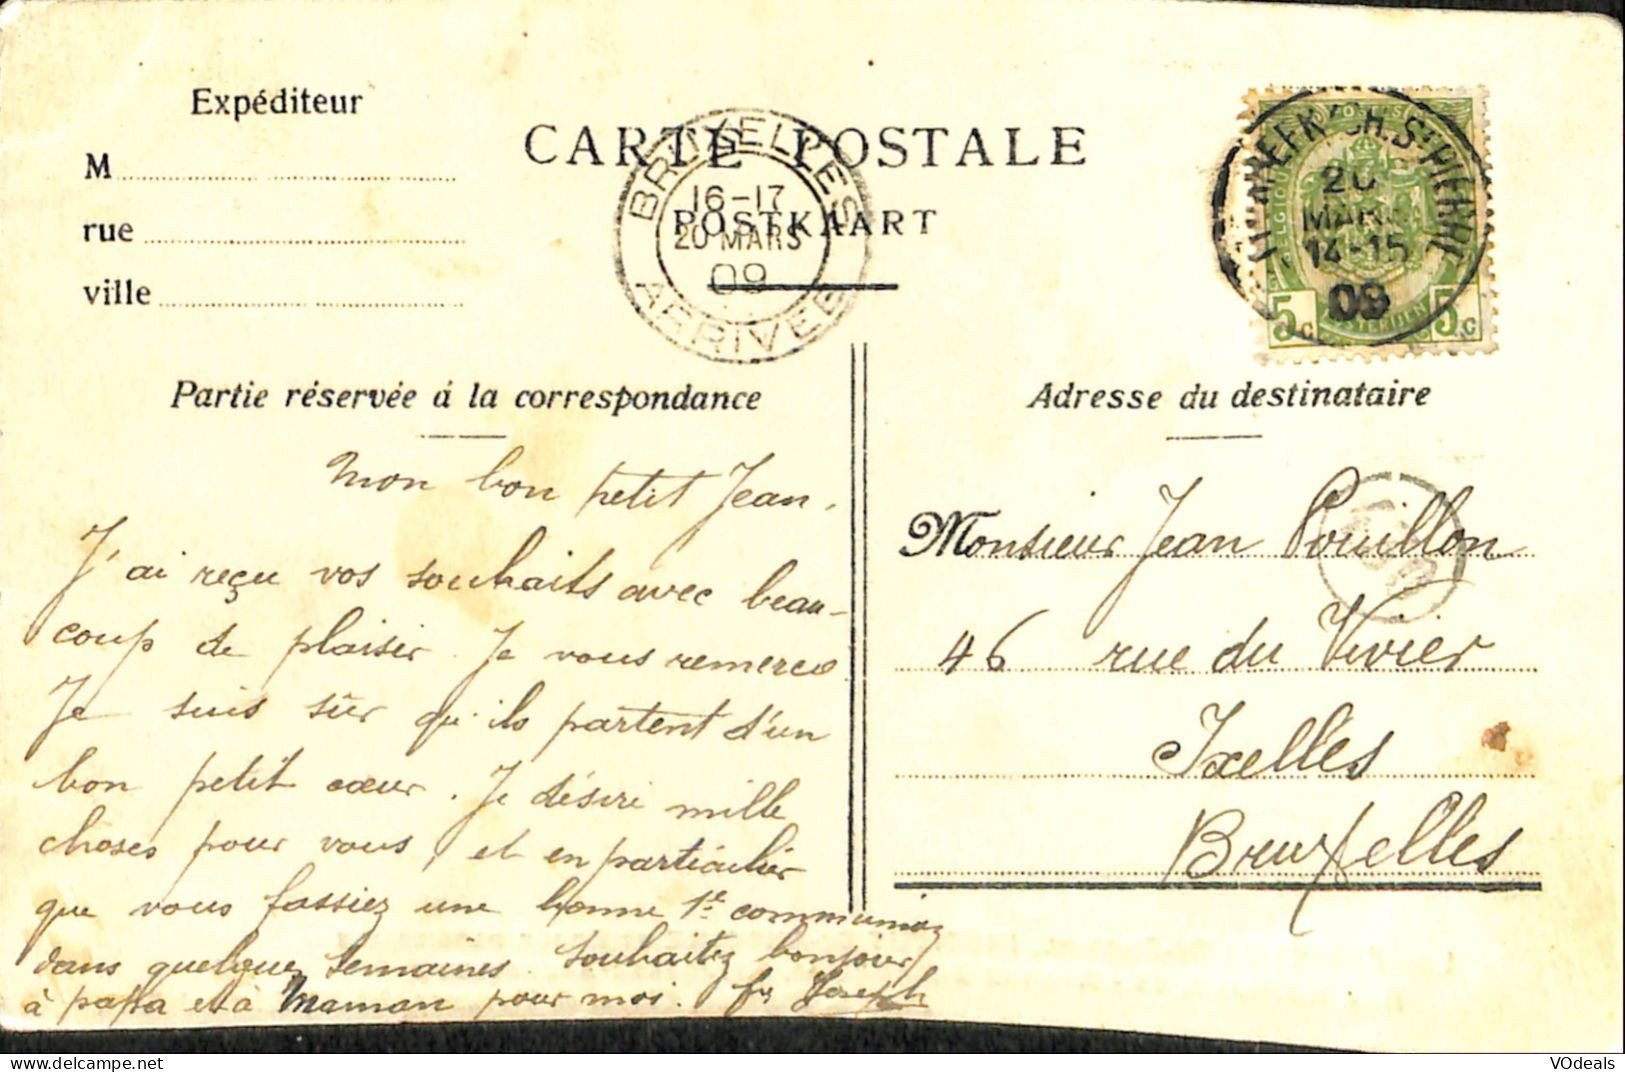 Expéditeur
M
rue
ville
CARTE POSTALE
POSTKAART
BRUXELLES
16-17
20 MARS
09
ARRIVEE
CH. ST PIERRE
20
MARS
14-15
09
5 c
5 c
Partie réservée á la correspondance
Adresse du destinataire
Mon bon petit Jean,
J'ai reçu vos souhaits avec beau-
coup de plaisir. Je vous remercie
Je suis sûr qu'ils partent d'un
bon petit cœur. Je désire mille
choses pour vous, et en particulier
que vous fassiez une bonne 1re communion
dans quelques semaines. Souhaitez bonjour
à papa et à Maman pour moi. fr Joseph
Monsieur Jean Pouillon
46 rue du Vivier
Ixelles
Bruxelles
VOdeals